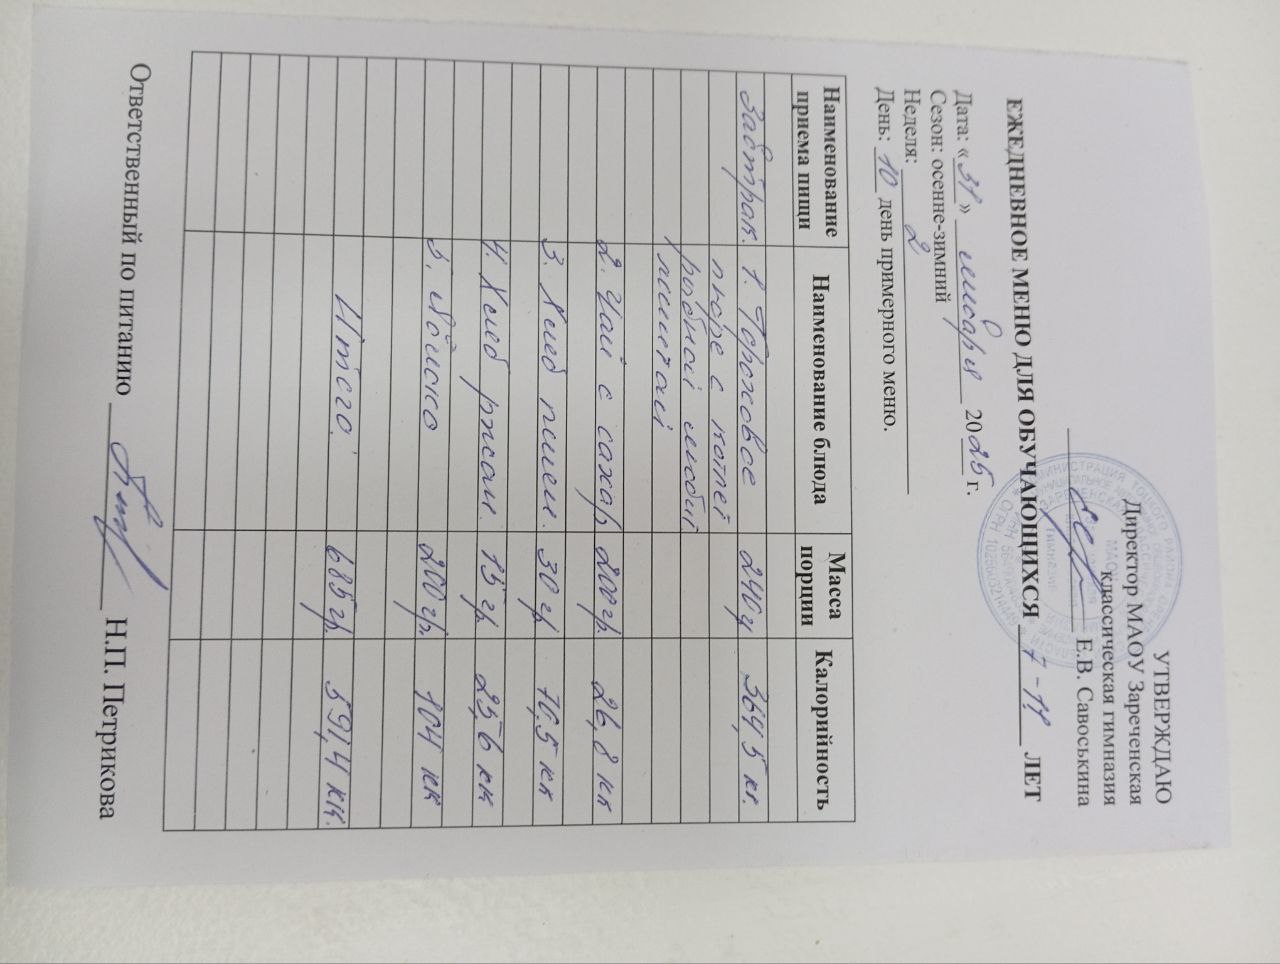 УТВЕРЖДАЮ
Директор МАОУ Зареченская
классическая гимназия
Е.В. Савоськина
ЕЖЕДНЕВНОЕ МЕНЮ ДЛЯ ОБУЧАЮЩИХСЯ 7-11 ЛЕТ
Дата: «31» января 2025 г.
Сезон: осенне-зимний
Неделя: 2
День: 10 день примерного меню.
Наименование приема пищи Наименование блюда Масса порции Калорийность
Завтрак. 1. Гороховое 240 364,5 кк.
пюре с котлет
рыбной любит
2. Чай с сахар 200 гр. 26,8 кк
3. Хлеб пшен. 30 гр 76,5 кк
4. Хлеб ржан. 15 гр. 25,6 кк
5. Яблоко 200 гр. 104 кк
Итого: 685 гр. 591,4 кк.
Ответственный по питанию Н.П. Петрикова